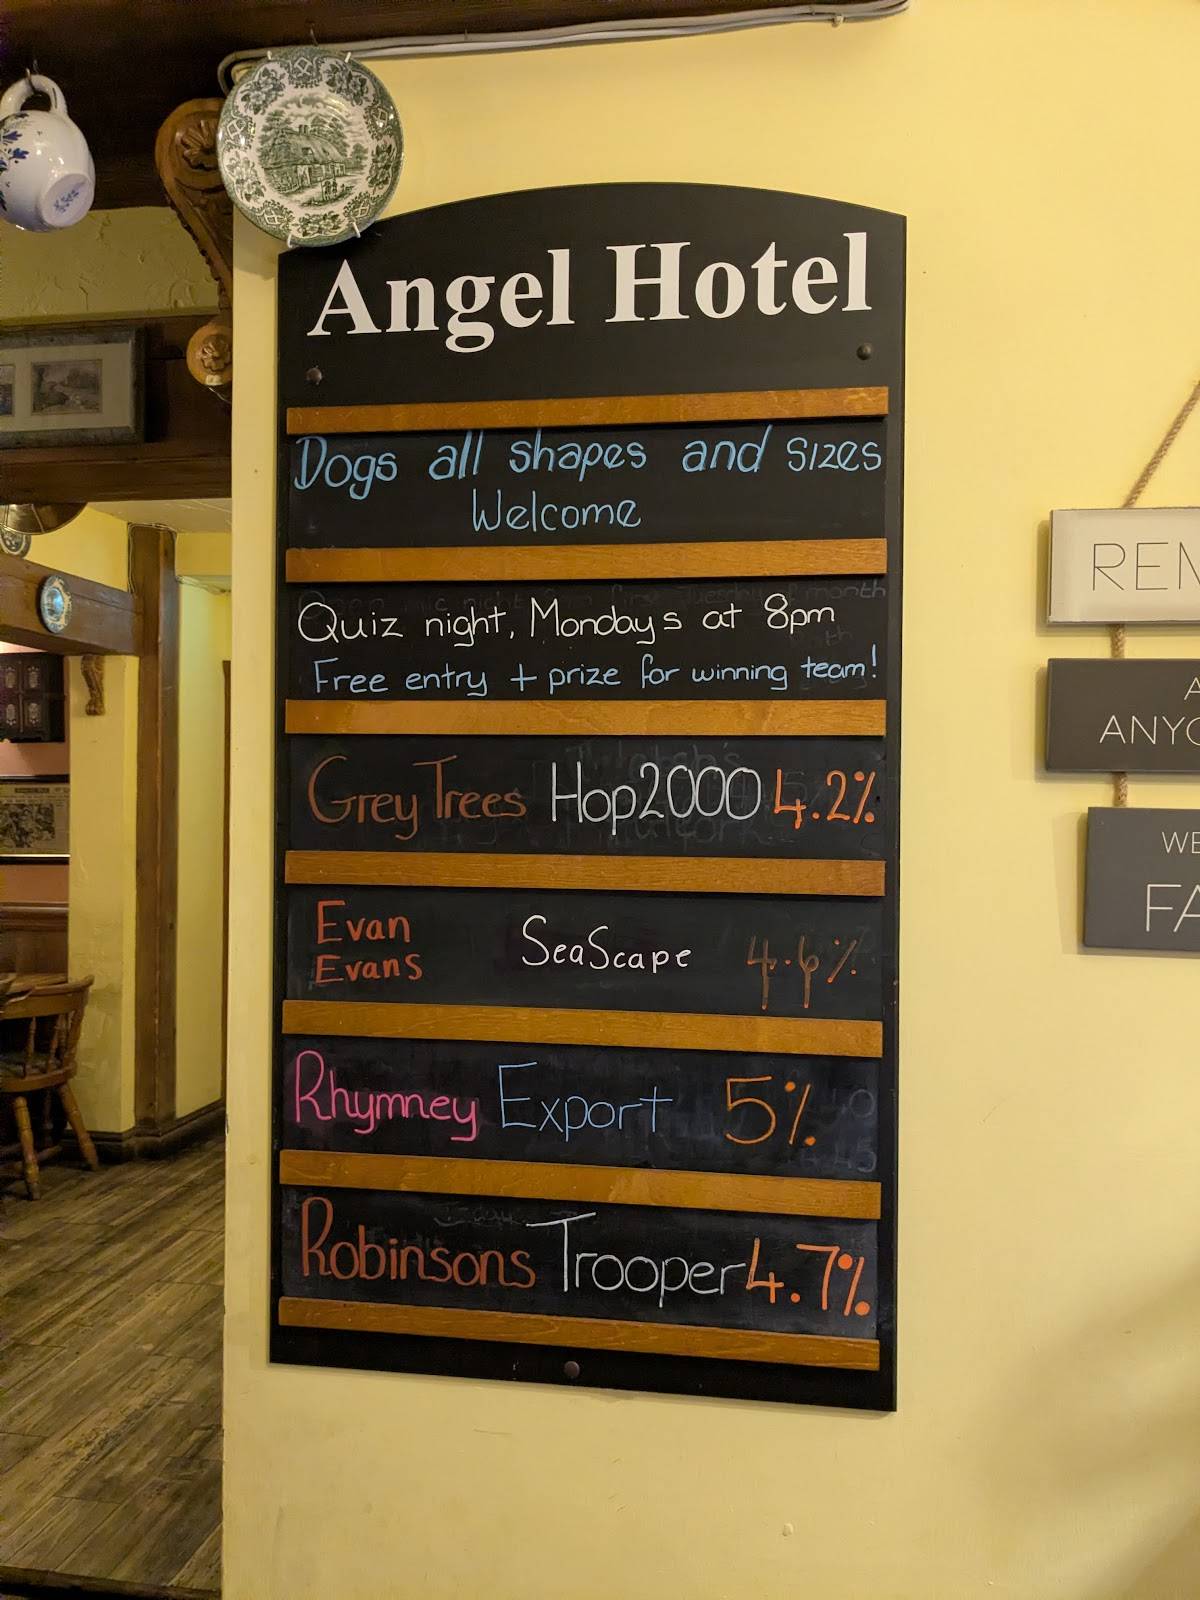 Angel Hotel
Dogs all shapes and sizes
Welcome
Quiz night, Mondays at 8pm
Free entry + prize for winning team!
Grey Trees Hop2000 4.2%
Evan
Evans SeaScape 4.6%
Rhymney Export 5%
Robinsons Trooper 4.7%
REM
A
ANYO
WE
FA